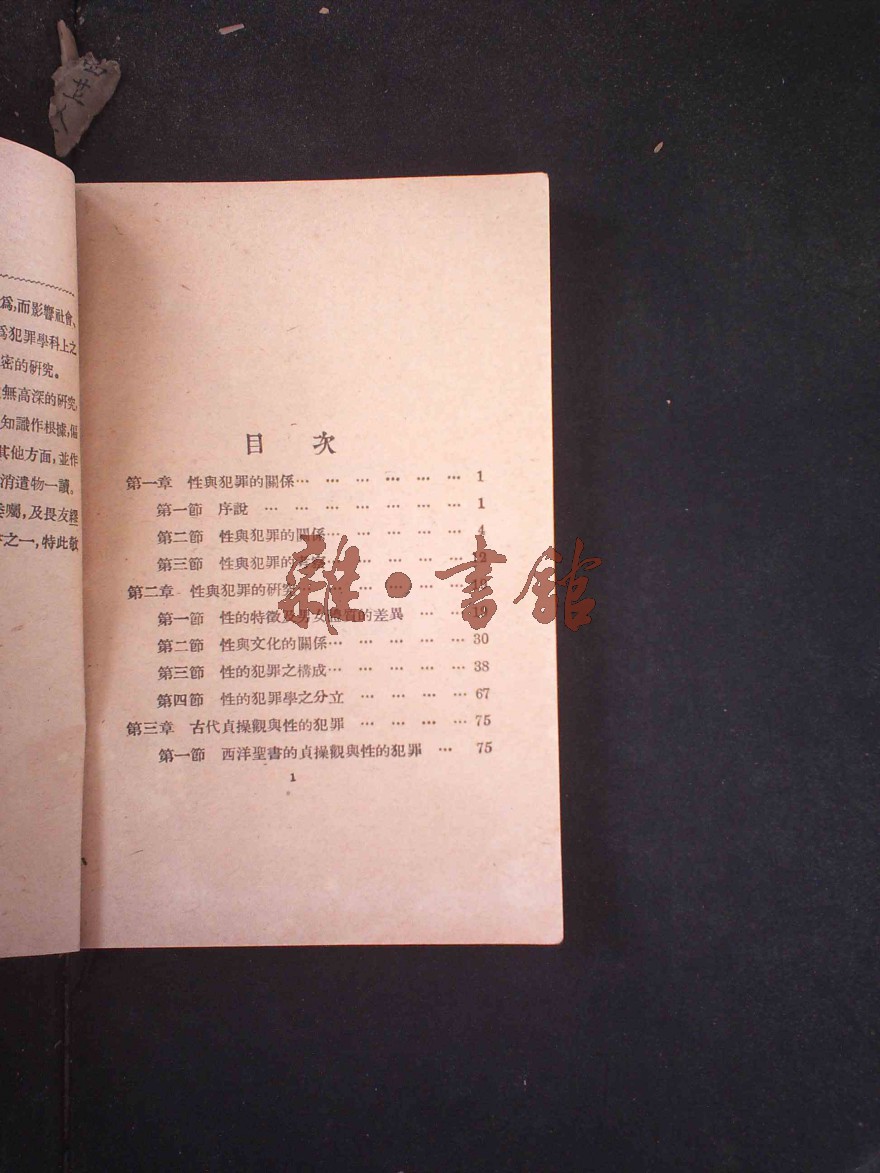 為，而影響社會、
為犯罪學科上之
密的研究。
無高深的研究，
知識作根據，偏
其他方面，並作
消遣物一讀。
委囑，及畏友
之一，特此敬
目 次
第一章 性與犯罪的關係… … … … … … 1
第一節 序說 … … … … … … 1
第二節 性與犯罪的關係… … … … … 4
第三節 性與犯罪的… … … … … 12
第二章 性與犯罪的研究… … … … … … 18
第一節 性的特徵及男女體質的差異 … … 19
第二節 性與文化的關係… … … … … 30
第三節 性的犯罪之構成… … … … … 38
第四節 性的犯罪學之分立 … … … … 67
第三章 古代貞操觀與性的犯罪 … … … … 75
第一節 西洋聖書的貞操觀與性的犯罪 … 75
1
雜·書館